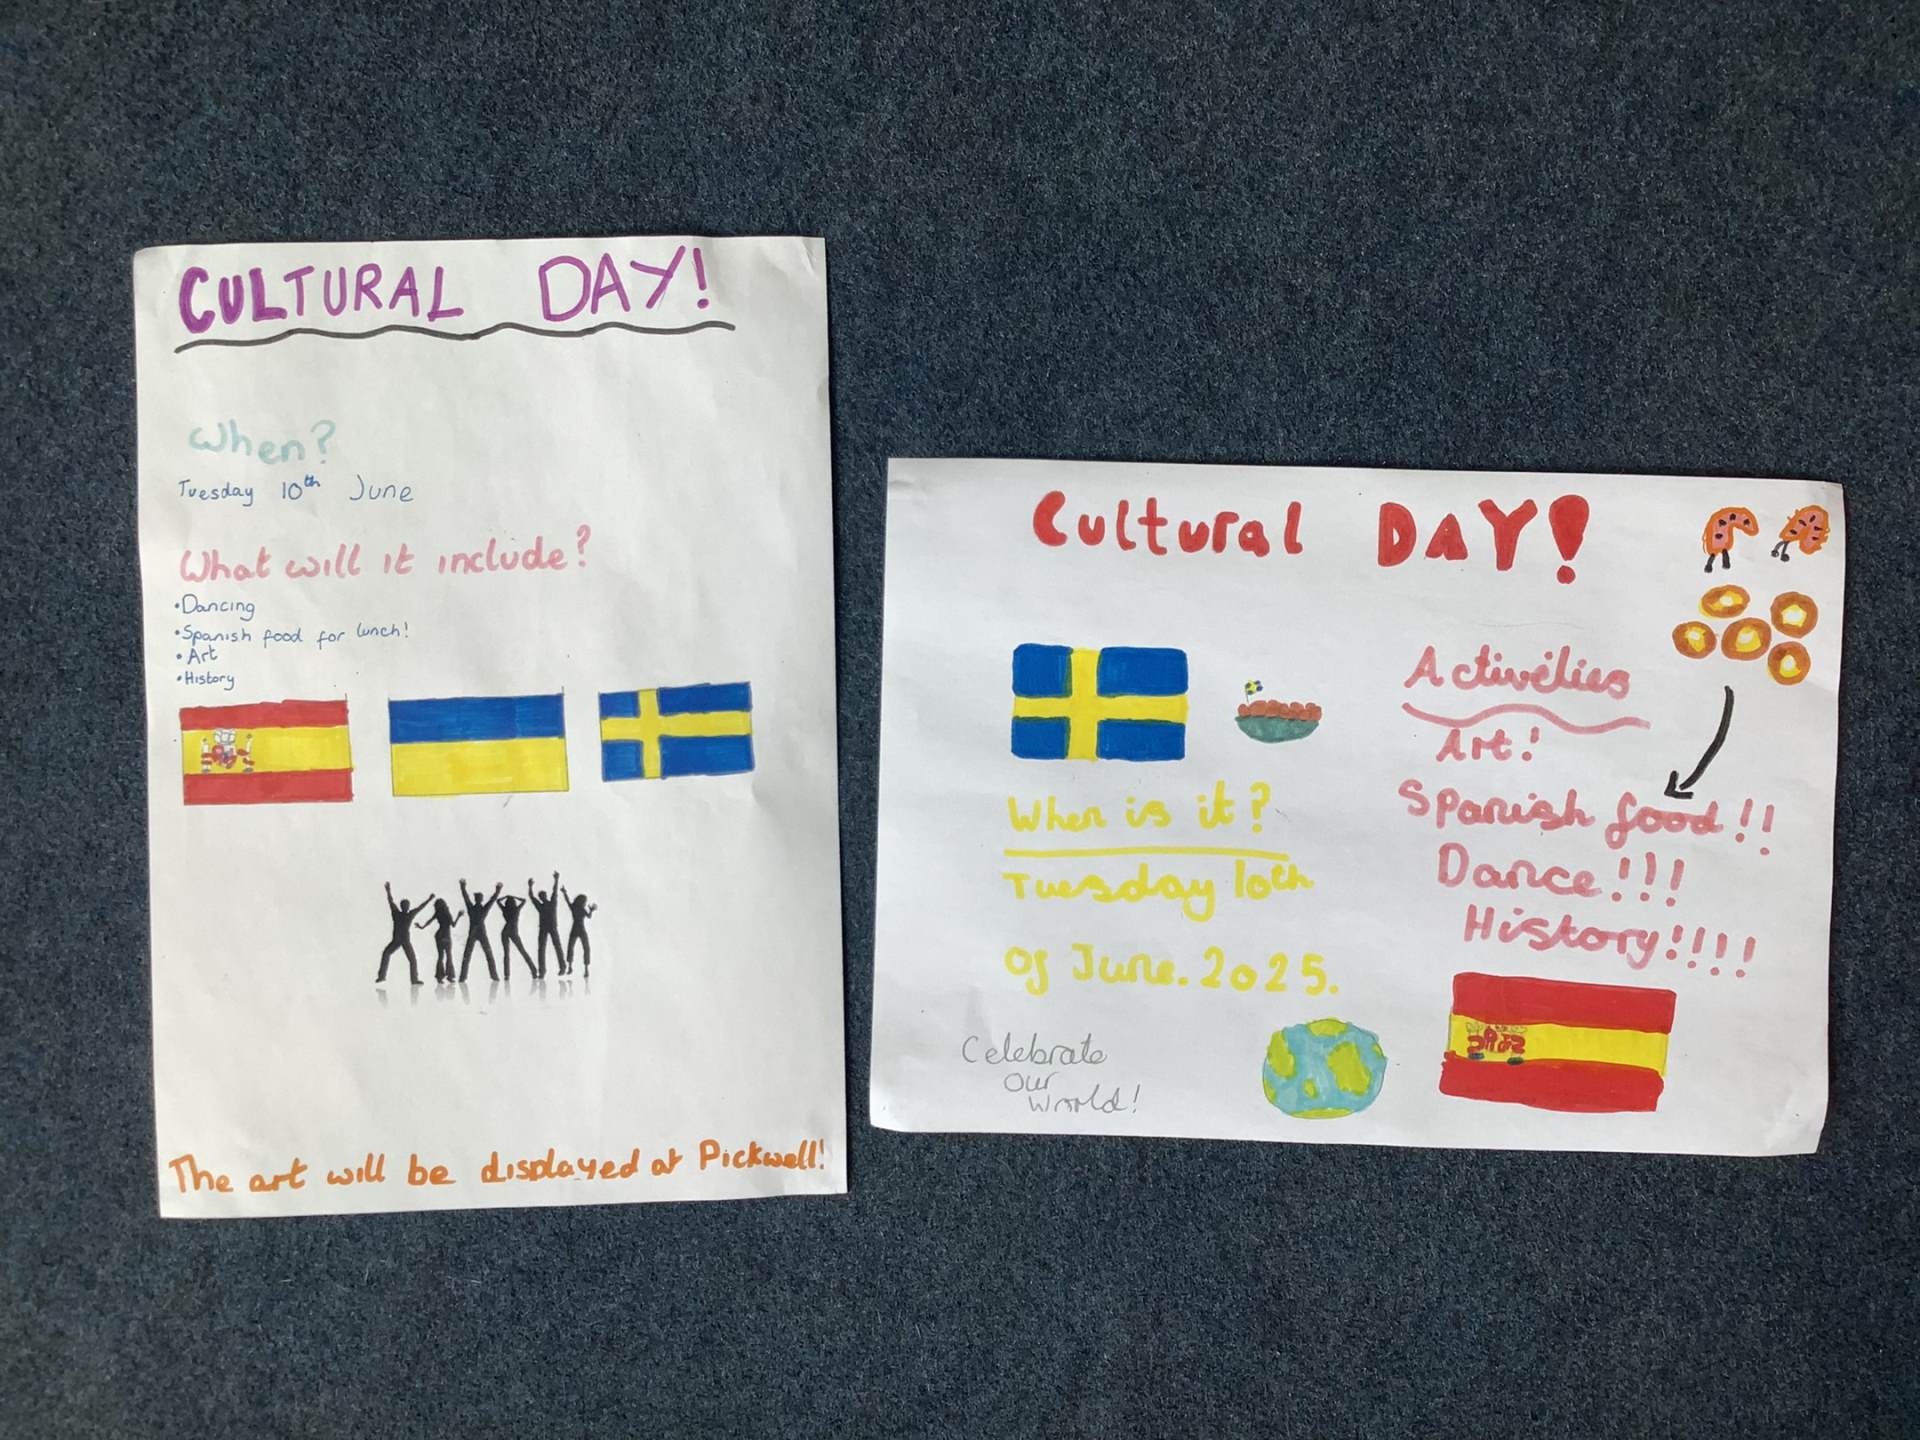 CULTURAL DAY!
When?
Tuesday 10th June
What will it include?
•Dancing
•Spanish food for lunch!
•Art
•History
The art will be displayed at Pickwell!
Cultural DAY!
When is it?
Tuesday 10th
of June. 2025.
Celebrate
our
world!
Activities
Art!
Spanish food!!
Dance!!!
History!!!!